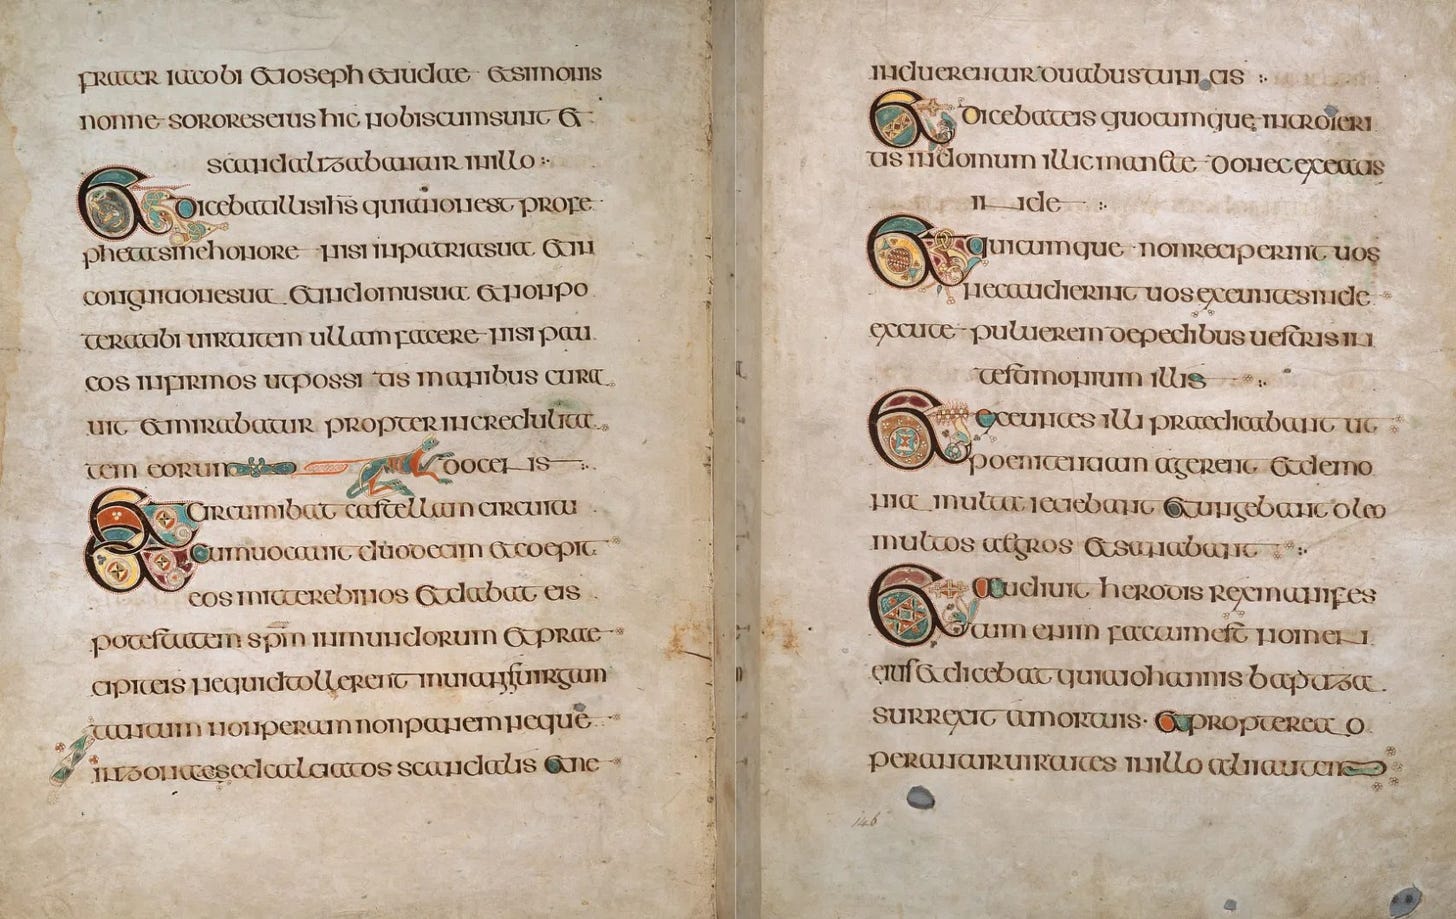 frater iacobi & ioseph & iudae & simonis
nonne sorores eius hic nobiscum sunt &
scandalizabantur in illo :·
& dicebat illis ihs quia non est profe
pheta sine honore nisi in patria sua & in
congnatione sua & in domu sua & non po
terat ibi uirtutem ullam facere nisi pau
cos infirmos ut possi tis manibus cura
uit & mirabatur propter incredulita
tem eorum docens
& circumibat castellum circuitu
& cum uocauit duodecim & coepit
eos mittere binos & dabat eis
potestatem spm inmundorum & prae
cipit eis nequid tollerent in uia nisi uirgam
tantum non peram non panem neque
in zona aes sed calciatos scandalis & ne
induerentur duabus tunicis :·
& dicebat eis quocumque introieri
tis in domum illic manete donec exeatis
inde :·
& quicumque non reciperint uos
nec audierint uos exeuntes inde
excute puluerem de pedibus uestris in
testimonium illis :·
& exeuntes illi praedicabant ut
poenitentiam agerent & demo
nia multa ieciebant & ungebant oleo
multos aegros & sanabant :·
& audiuit herodis rex manifes
tum enim factum est nomen
eius & dicebat quia iohannis baptiza
surrexit a mortuis · & propterea o
perantur uirtutes in illo alii autem
146